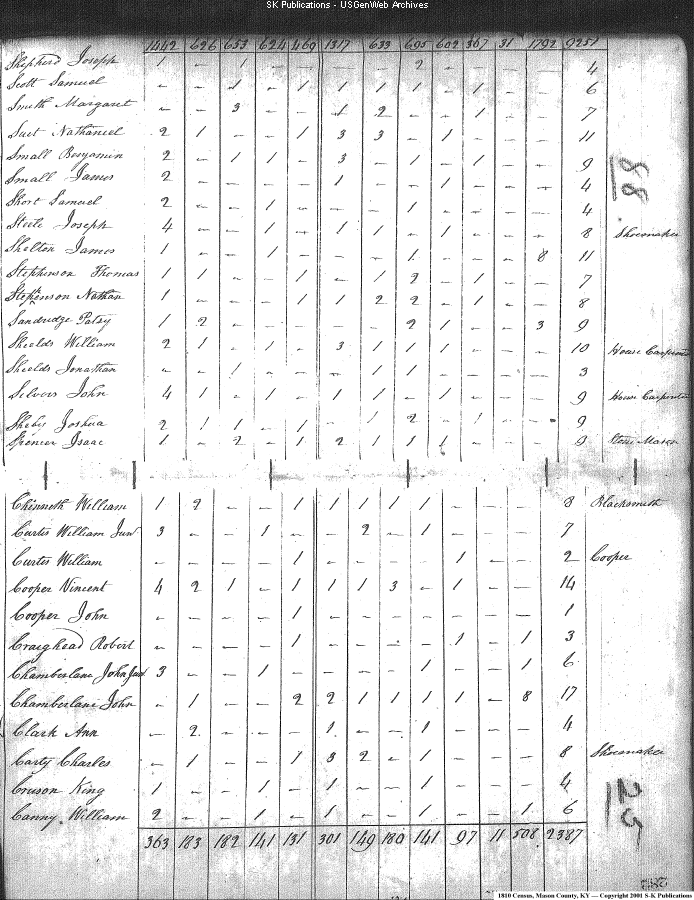 SK Publications - USGenWeb Archives
1442 626 653 624 469 1317 633 695 602 367 31 1792 9251
Shepherd Joseph 1 - 1 - - - - 2 - - - - 4
Scott Samuel - - 1 - 1 1 1 1 - 1 - - 6
Smith Margaret - - 3 - - 1 2 - - 1 - - 7
Suet Nathaniel 2 1 - - 1 3 3 - 1 - - - 11
Small Benjamin 2 - 1 1 - 3 - 1 - 1 - - 9
Small James 2 - - - - 1 - - 1 - - - 4
Short Samuel 2 - - 1 - - - 1 - - - - 4
Steele Joseph 4 - - 1 - 1 1 - 1 - - - 8 Shoemaker
Shelton James 1 - - 1 - - - 1 - - - 8 11
Stephenson Thomas 1 1 - - 1 - 1 2 - 1 - - 7
Stephenson Nathan 1 - - - 1 1 2 2 - 1 - - 8
Sandridge Patsy 1 2 - - - - - 2 1 - - 3 9
Shields William 2 1 - 1 - 3 1 1 1 - - - 10 House Carpenter
Shields Jonathan - - 1 - - - 1 1 - - - - 3
Silvers John 4 1 - 1 - 1 1 - 1 - - - 9 House Carpenter
Sheby Joshua 2 1 1 - 1 - 1 2 - 1 - - 9
Spencer Isaac 1 - 2 - 1 2 1 1 1 - - - 9 Stone Mason
88
Chinneth William 1 2 - - 1 1 1 1 1 - - - 8 Blacksmith
Curtis William Junr 3 - - 1 - - 2 - 1 - - - 7
Curtis William - - - - 1 - - - - 1 - - 2 Cooper
Cooper Vincent 4 2 1 - 1 1 1 3 - 1 - - 14
Cooper John - - - - 1 - - - - - - - 1
Craighead Robert - - - - 1 - - - - 1 - 1 3
Chamberlane John Junr 3 - - 1 - - - - 1 - - 1 6
Chamberlane John - 1 - - 2 2 1 1 1 1 - 8 17
Clark Ann - 2 - - - 1 - - 1 - - - 4
Carty Charles - 1 - - 1 3 2 - 1 - - - 8 Shoemaker
Cruson King 1 - - 1 - 1 - - 1 - - - 4
Canny William 2 - - 1 - 1 - - 1 - - 1 6
25
363 183 182 141 131 301 149 180 141 97 11 508 2387
1810 Census, Mason County, KY — Copyright 2001 S-K Publications